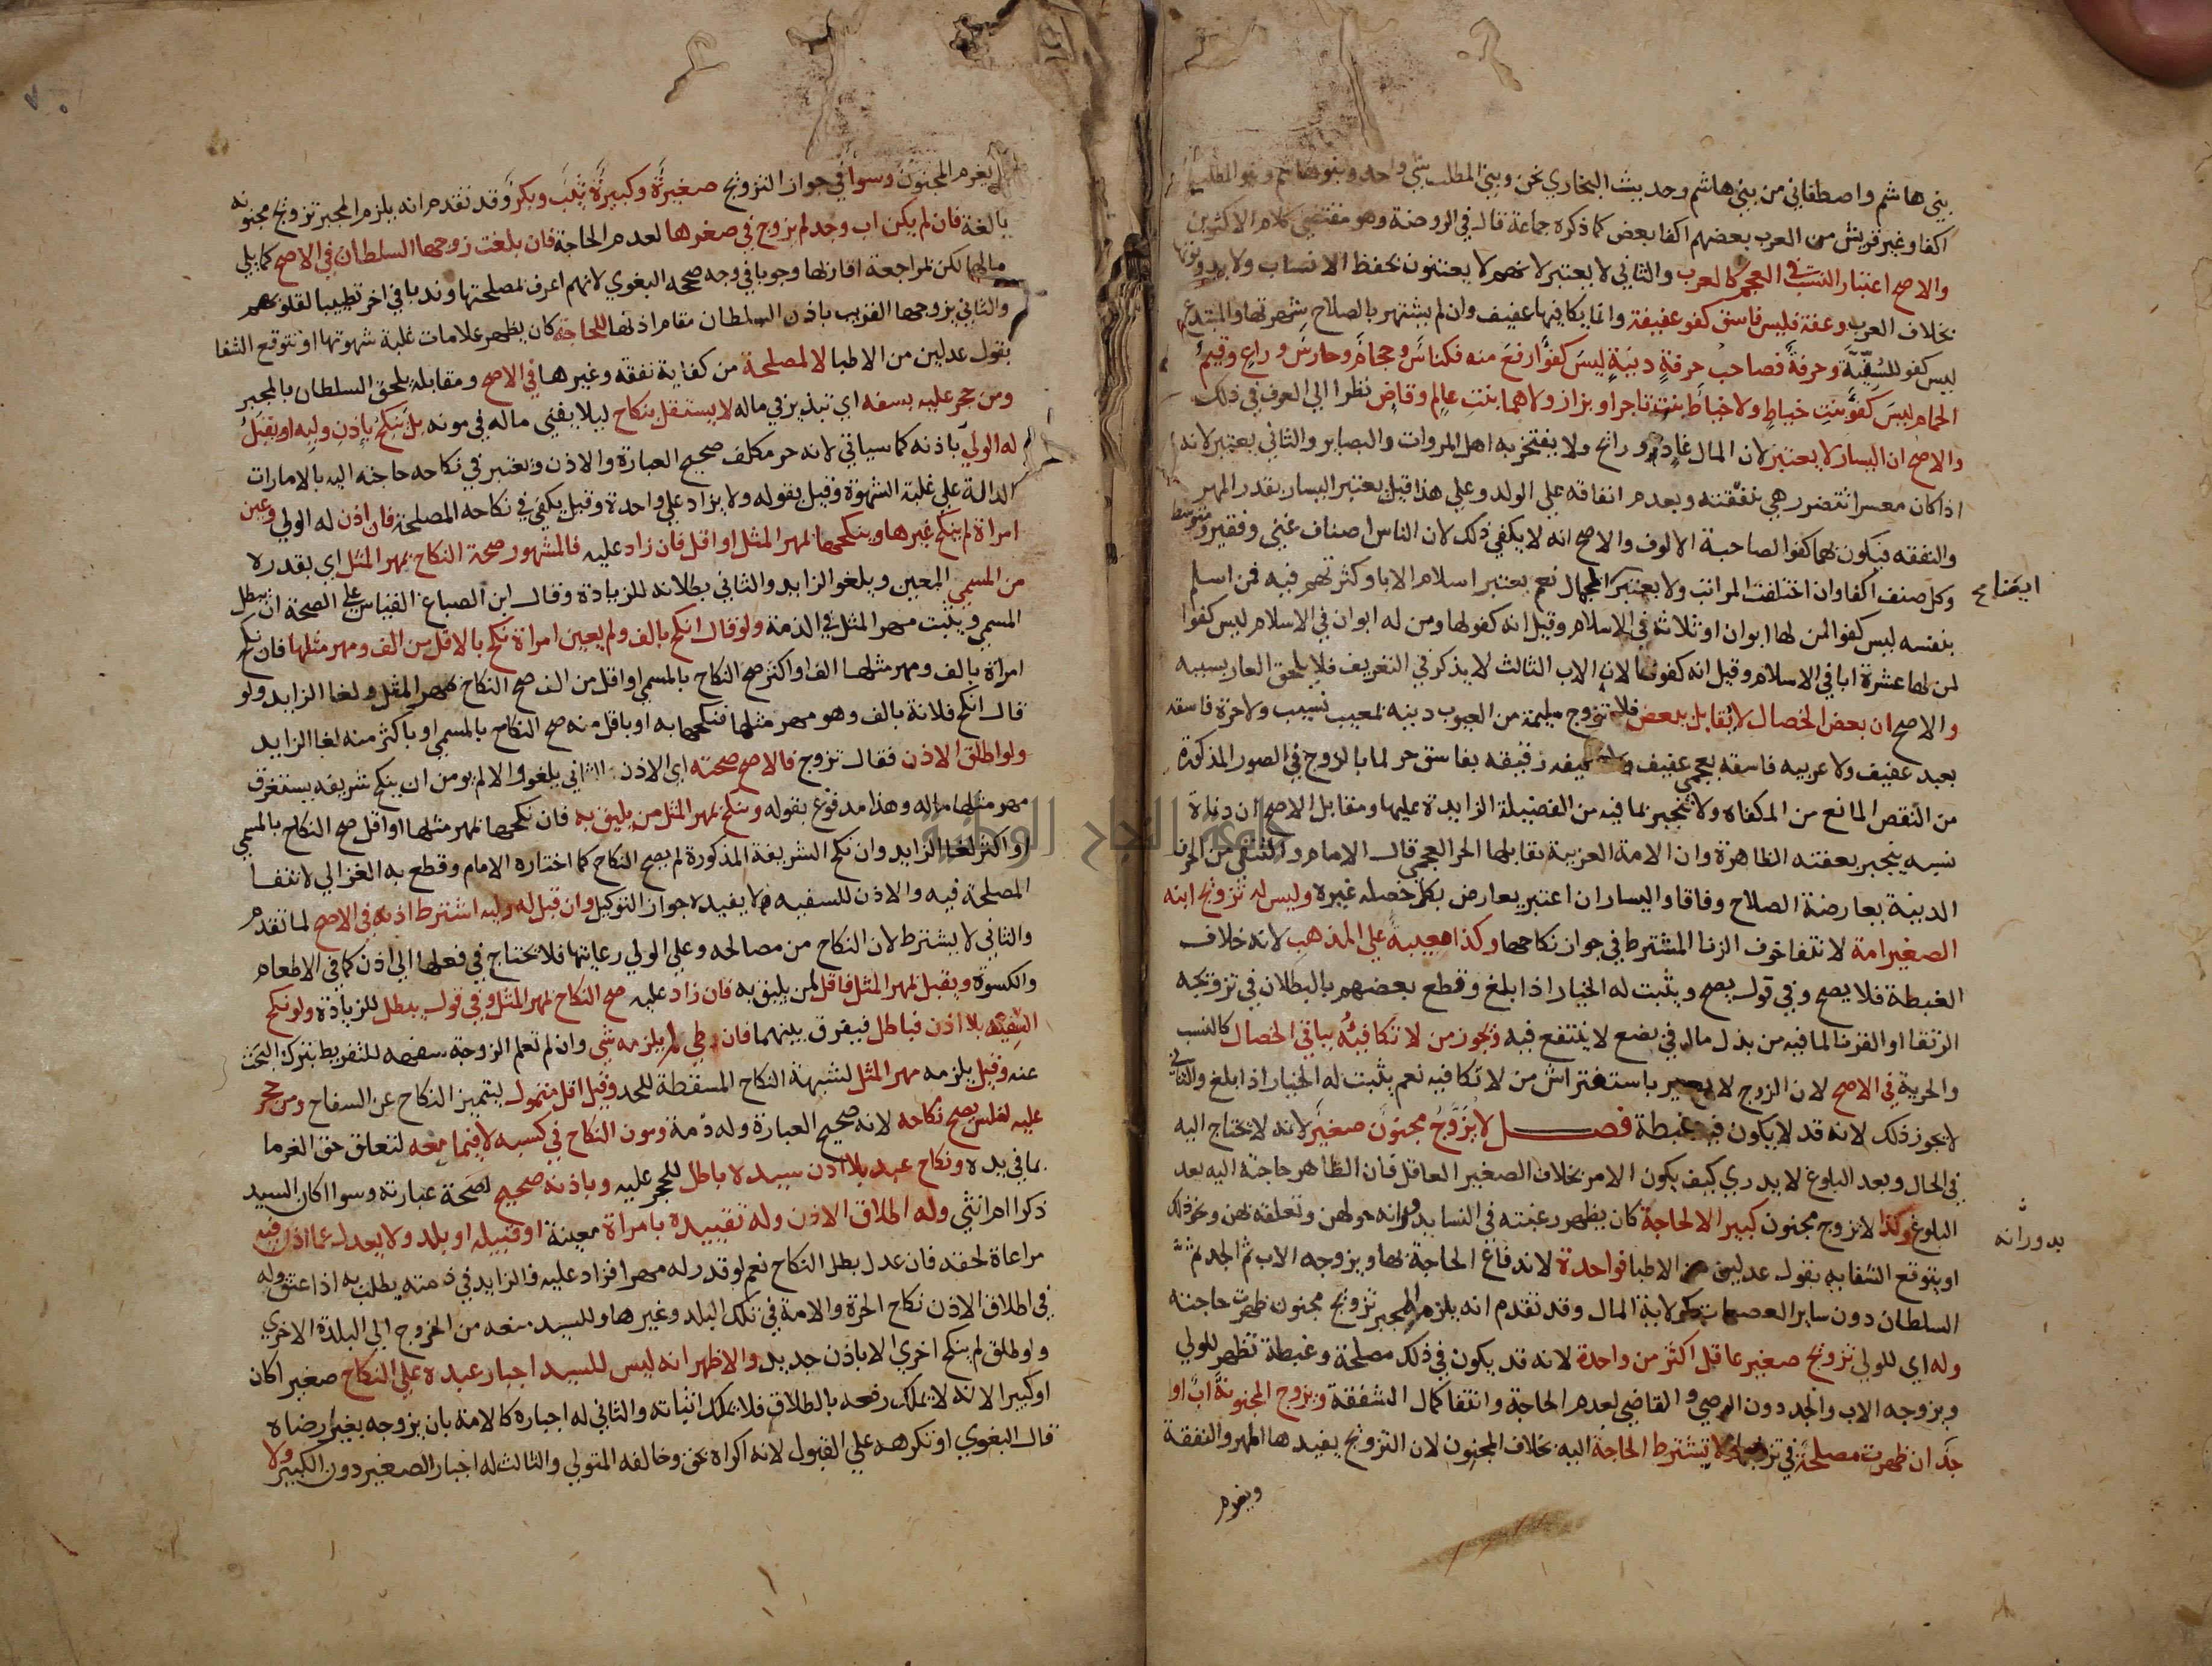 بني هاشم واصطفاني من بني هاشم وحديث البخاري نحن وبني المطلب شي واحد وبنو هاشم وبنو المطلب
اكفا وغير قريش من العرب بعضهم اكفا بعض كما ذكره جماعة قال في الروضة وهو مقتضي كلام الاكثرين
والاصح اعتبار النسب في العجم كالعرب والثاني لا يعتبر لانهم لا يعتنون بحفظ الانساب ولا يدونونها
بخلاف العرب وعفة فليس فاسق كفو عفيفة وانما يكافيها عفيف وان لم يشتهر بالصلاح شهرتها والمبتدع
ليس كفو للسنية وحرفة فصاحب حرفة دنية ليس كفو ارفع منه فكناس وحجام وحارس وراع وقيم
الحمام ليس كفو بنت خياط ولا خياط بنت تاجر او بزاز ولا هما بنت عالم وقاض نظرا الي العرف في ذلك
والاصح ان اليسار لا يعتبر لان المال غاد ورائح ولا يفتخر به اهل المروات والبصاير والثاني يعتبر لانه
اذا كان معسرا تتضرر هي بنفقته وبعدم انفاقه علي الولد وعلي هذا قيل يعتبر اليسار بقدر المهر
والنفقه فيكون بهما كفوا لصاحبة الالوف والاصح انه لا يكفي ذلك لان الناس اصناف غني وفقير ومتوسط
وكل صنف اكفا وان اختلفت المراتب ولا يعتبر الجمال نعم يعتبر اسلام الابا وكثرتهم فيه فمن اسلم
بنفسه ليس كفوا لمن لها ابوان او ثلاثة في الاسلام وقيل انه كفو لها ومن له ابوان في الاسلام ليس كفوا
لمن لها عشرة ابا في الاسلام وقيل انه كفو لها لان الاب الثالث لا يذكر في التعريف فلا يلحق العار بسببه
والاصح ان بعض الخصال لا يقابل ببعض فلا تزوج سليمة من العيوب دنيه لمعيب نسيب ولا حرة فاسقه
بعبد عفيف ولا عربيه فاسقه بعجمي عفيف ولا عفيفه رقيقه بفاسق حر لما بالزوج في الصور المذكورة
من النقص المانع من المكفاه ولا ينجبر بما فيه من الفضيلة الزايدة عليها ومقابل الاصح ان دناة
نسبه ينجبر بعفته الظاهرة وان الامة العربية يقابلها الحر العجمي قال الامام والتنقي من الحرف
الدنية يعارضة الصلاح وفاقا واليسار ان اعتبر يعارض بكل خصله غيره وليس له تزويج ابنه
الصغير امة لانتفا خوف الزنا المشترط في جواز نكاحها وكذا معيبة علي المذهب لانه خلاف
الغبطة فلا يصح وفي قول يصح ويثبت له الخيار اذا بلغ وقطع بعضهم بالبطلان في تزويجه
الرتقا او القرنا لما فيه من بذل مال في بضع لا ينتفع فيه ويجوز من لا تكافيه بباقي الخصال كالنسب
والحرية في الاصح لان الزوج لا يعير باستفتراش من لا تكافيه نعم يثبت له الخيار اذا بلغ والثاني
لا يجوز ذلك لانه قد لا يكون فيه غبطة فصل لا يزوج مجنون صغير لانه لا يحتاج اليه
في الحال وبعد البلوغ لا يدري كيف يكون الامر بخلاف الصغير العاقل فان الظاهر حاجته اليه بعد
البلوغ وكذا لا تزوج مجنون كبير الا لحاجة كان يظهر رغبته في النسا بدورانه حولهن وتعلقه بهن ونحو ذلك
او يتوقع الشفا به بقول عدلين من الاطبا فواحدة لاندفاع الحاجة بها ويزوجه الاب ثم الجد ثم
السلطان دون ساير العصبات كولاية المال وقد تقدم انه يلزم المجبر تزويج مجنون ظهرت حاجته
وله اي للولي تزويج صغير عاقل اكثر من واحدة لانه قد يكون في ذلك مصلحة وغبطة تظهر للولي
ويزوجه الاب والجد دون الوصي والقاضي لعدم الحاجة وانتفا كمال الشفقة ويزوج المجنونة اب او
جد ان ظهرت مصلحة في تزويجها ولا تشترط الحاجة اليه بخلاف المجنون لان التزويج يفيدها المهر والنفقة
ويغرم
بدورانه
يغرم المجنون وسوا في جواز التزويج صغيرة وكبيرة ثيب وبكر وقد تقدم انه يلزم المجبر تزويج مجنونه
بالغة فان لم يكن اب وجد لم تزوج في صغرها لعدم الحاجة فان بلغت زوجها السلطان في الاصح كما يلي
مالها لكن بمراجعة اقاربها وجوبا في وجه صححه البغوي لانهم اعرف بمصلحتها وندبا في اخر تطييبا لقلوبهم
والثاني يزوجها القريب باذن السلطان مقام اذنها للحاجة كان يظهر علامات غلبة شهوتها او تتوقع الشفا
بقول عدلين من الاطبا لا لمصلحة من كفاية نفقه وغيرها في الاصح ومقابله يلحق السلطان بالمجبر
ومن حجر عليه بسفه اي تبذير في ماله لا يستقل بنكاح ليلا يفني ماله في مونه بل ينكح باذن وليه او يقبل
له الولي باذنه كما سياتي لانه حر مكلف صحيح العبارة والاذن ويعتبر في نكاحه حاجته اليه بالامارات
الدالة علي غلبة الشهوة وقيل بقوله ولا يزاد علي واحدة وقيل يكفي في نكاحه المصلحة فان اذن له الولي وعين
امراة لم ينكح غيرها وينكحها بمهر المثل او اقل فان زاد عليه فالمشهور صحة النكاح بمهر المثل اي بقدره
من المسمي المعين ويلغو الزايد والثاني بطلانه للزيادة وقال ابن الصباغ القياس علي الصحة ان يبطل
المسمي ويثبت مهر المثل في الذمة ولو قال انكح بالف ولم يعين امراة نكح بالاقل من الف ومهر مثلها فان نكح
امراة بالف ومهر مثلها الف او اكثر صح النكاح بالمسمي او اقل من الف صح النكاح بمهر المثل ولغا الزايد ولو
قال انكح فلانة بالف وهو مهر مثلها فنكحها به او باقل منه صح النكاح بالمسمي او باكثر منه لغا الزايد
ولو اطلق الاذن فقال تزوج فالاصح صحته اي الاذن والثاني يلغو والا لم يومن ان ينكح شريفه يستغرق
مهر مثلها ماله وهذا مدفوع بقوله وينكح بمهر المثل من يليق به فان نكحها بمهر مثلها او اقل صح النكاح بالمسمي
او اكثر لغا الزايد وان نكح الشريفة المذكورة لم يصح النكاح كما اختاره الامام وقطع به الغزالي لانتفا
المصلحة فيه والاذن للسفيه لا يفيده جواز التوكيل وان قبل له وليه اشترط اذنه في الاصح لما تقدم
والثاني لا يشترط لان النكاح من مصالحه وعلي الولي رعايتها فلا يحتاج في فعلها الي اذن كما في الاطعام
والكسوة ويقبل بمهر المثل فاقل لمن يليق به فان زاد عليه صح النكاح بمهر المثل وفي قول يبطل للزيادة ولو نكح
السفيه بلا اذن فباطل فيفرق بينهما فان وطي لم يلزمه شي وان لم تعلم الزوجة سفهه للتفريط بترك البحث
عنه وقيل يلزمه مهر المثل لشبهة النكاح المسقطة للحد وقيل اقل متمول ليتميز النكاح عن السفاح ومن حجر
عليه لفلس يصح نكاحه لانه صحيح العبارة وله ذمة ومون النكاح في كسبه لا فيما معه لتعلق حق الغرما
بما في يده ونكاح عبد بلا اذن سيده باطل للحجر عليه وباذنه صحيح لصحة عبارته وسوا اكان السيد
ذكرا ام انثي وله اطلاق الاذن وله تقييده بامراة معينة او قبيله او بلد ولا يعدل عما اذن فيه
مراعاة لحقه فان عدل بطل النكاح نعم لو قدر له مهرا فزاد عليه فالزايد في ذمته يطلب به اذا عتق وله
في اطلاق الاذن نكاح الحرة والامة في تلك البلد وغيرها وللسيد منعه من الخروج الي البلدة الاخري
ولو طلق لم ينكح اخري الا باذن جديد والاظهر انه ليس للسيد اجبار عبده علي النكاح صغير اكان
او كبيرا لانه لا يملك رفعه بالطلاق فلا يملك اثباته والثاني له اجباره كالامة بان يزوجه بغير رضاه
قال البغوي او تكرهه علي القبول لانه اكراه بحق وخالفه المتولي والثالث له اجبار الصغير دون الكبير ولا